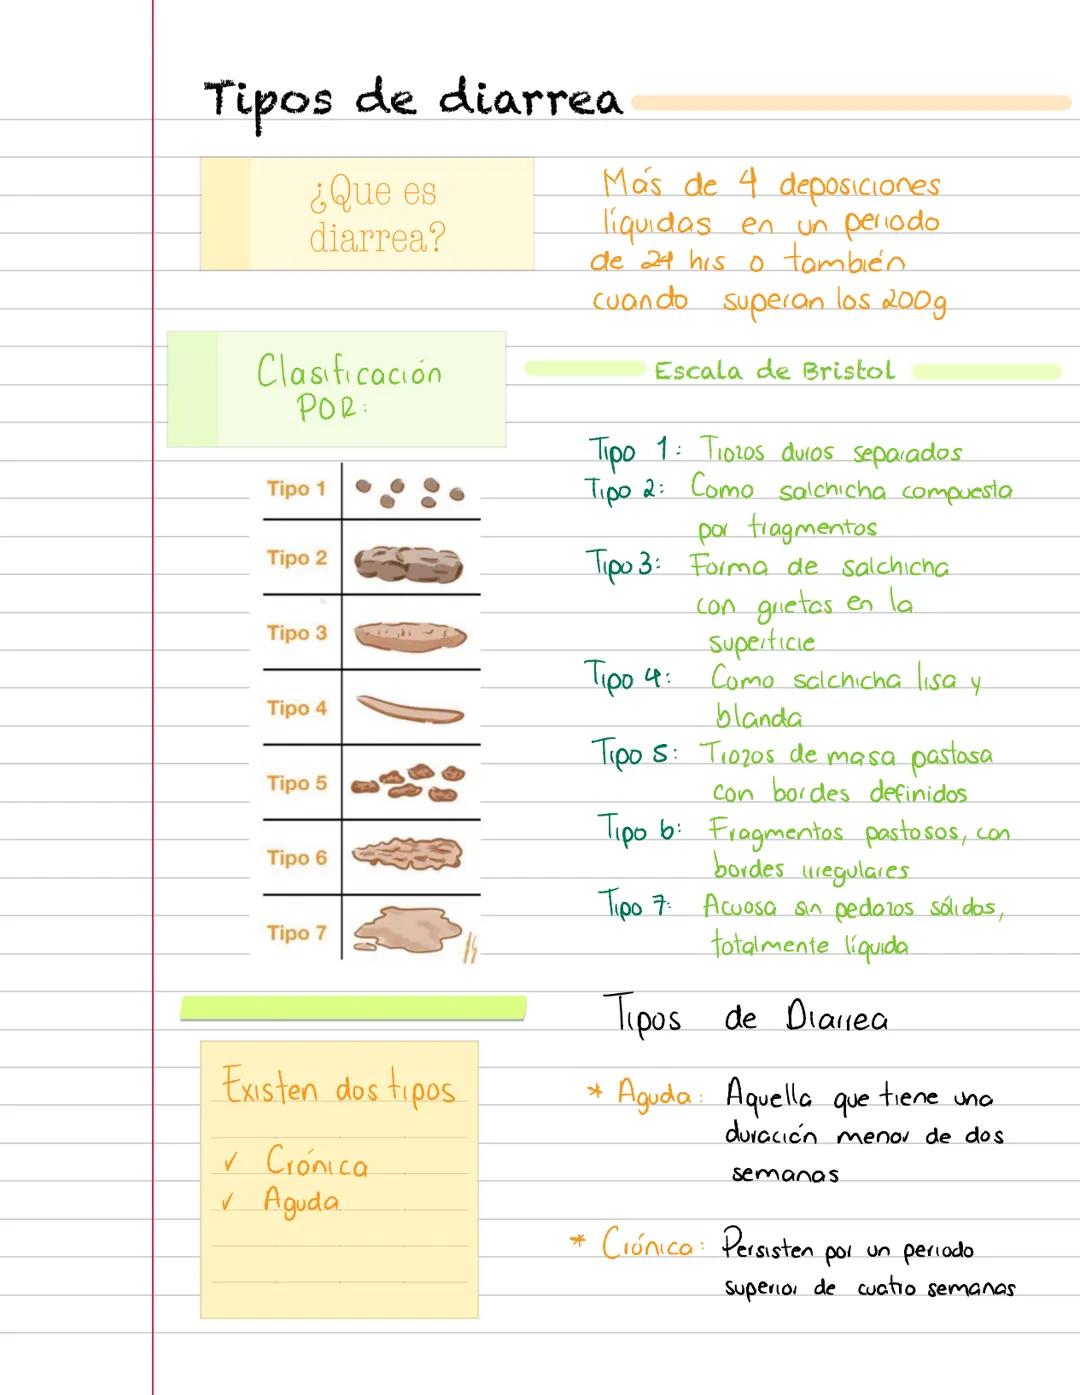 Tipos de diarrea
¿Que es
diarrea?
Más de 4 deposiciones
líquidas en un periodo
de 24 hrs o también
cuando superan los 200g
Clasificación
POR:
Escala de Bristol
Tipo 1
Tipo 2
Tipo 3
Tipo 4
Tipo 5
Tipo 6
Tipo 7
Tipo 1: Trozos duros separados
Tipo 2: Como salchicha compuesta
por fragmentos
Tipo 3: Forma de salchicha
con grietas en la
superficie
Tipo 4: Como salchicha lisa y
blanda
Tipo 5: Trozos de masa pastosa
con bordes definidos
Tipo 6: Fragmentos pastosos, con
bordes irregulares
Tipo 7: Acuosa sin pedazos sólidos,
totalmente líquida
Existen dos tipos
✓ Crónica
✓ Aguda
Tipos de Diarrea
* Aguda: Aquella que tiene una
duración menor de dos
semanas
* Crónica: Persisten por un periodo
superior de cuatro semanas